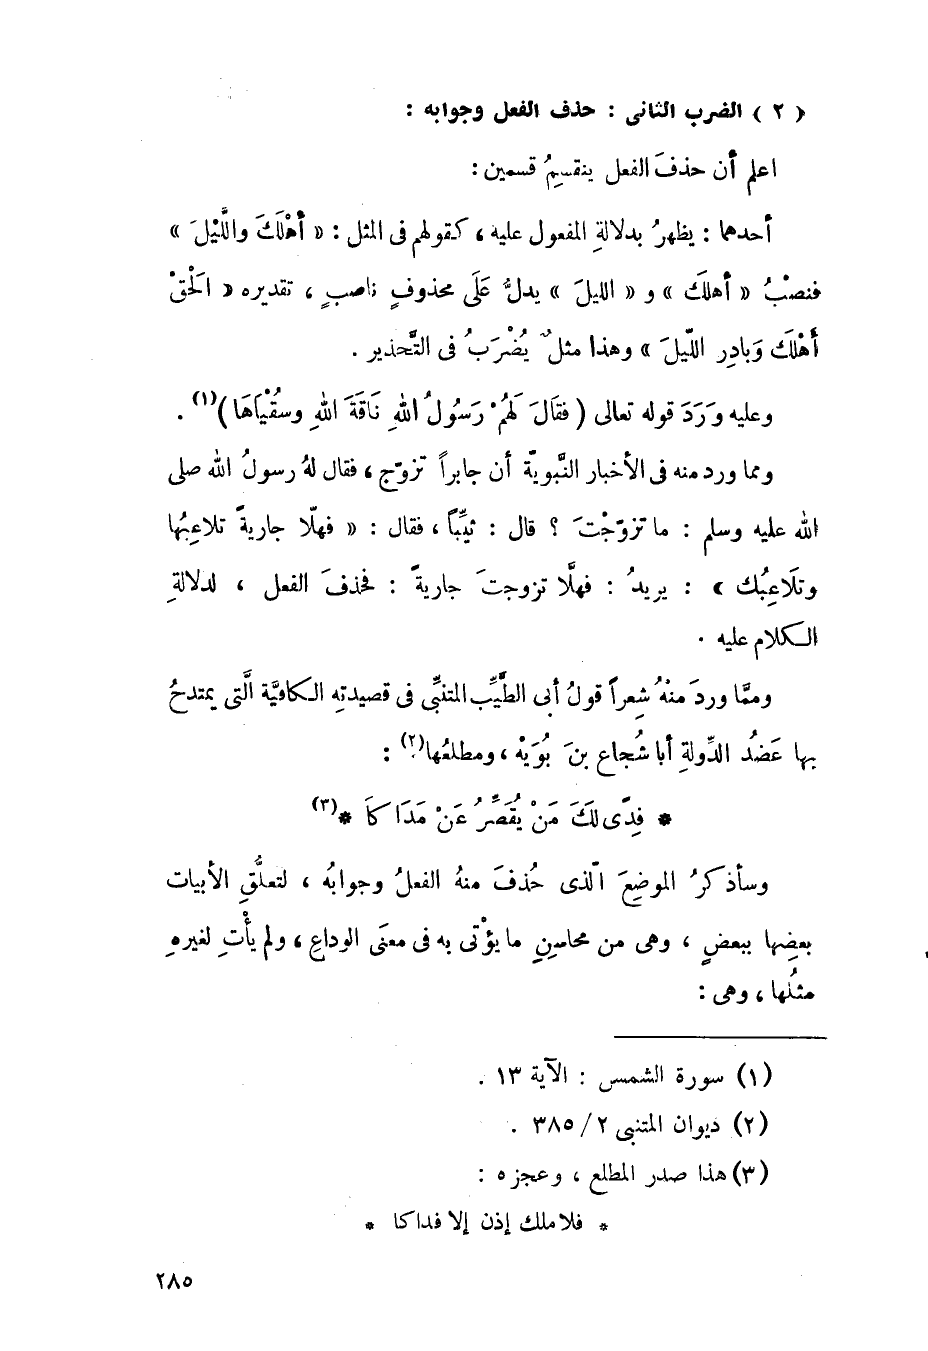 ( ٢ ) الضرب الثانى : حذف الفعل وجوابه :
اعلم أن حذفَ الفعل ينقسِمُ قسمين :
أحدهما : يظهرُ بدلالةِ المفعول عليه ، كقولهم فى المثل : « أهْلَكَ واللَّيْلَ »
فنصْبُ « أهلكَ » و « الليلَ » يدلُّ عَلَى محذوفٍ ناصبٍ ، تقديره « الْحَقْ
أهْلَكَ وَبادِرِ اللّيلَ » وهذا مثلٌ يُضْرَبُ فى التَّحذير .
وعليه وَرَدَ قوله تعالى ( فقَالَ لَهُمْ رَسُولُ اللهِ نَاقَةَ اللهِ وسقْيَاهَا )(١) .
ومما ورد منه فى الأخبار النَّبويّة أن جابراً تزوّج ، فقال لهُ رسولُ الله صلى
الله عليه وسلم : ما تزوّجْتَ ؟ قال : ثيِّباً ، فقال : « فهلّا جاريةً تلاعِبُها
وتلَاعِبُك » : يريدُ : فهلَّا تزوجتَ جاريةً : فحذفَ الفعل ، لدلالةِ
الكلام عليه .
وممَّا وردَ منْهُ شِعراً قولُ أبى الطَّيِّب المتنبِّى فى قصيدتِه الكافيَّة الَّتى يمتدحُ
بها عَضُدَ الدِّولةِ أبا شُجاع بنَ بُوَيْه ، ومطلعُها(٢) :
* فِدًى لكَ مَنْ يُقَصِّرُ عَنْ مَدَاكَا *(٣)
وسأذكرُ الموضِعَ الّذى حُذفَ منهُ الفعلُ وجوابُه ، لتعلُّقِ الأبيات
بعضِها ببعضٍ ، وهى من محاسنِ ما يؤْتى به فى معنَى الوداعِ ، ولم يأْتِ لغيرِهِ
مثلُها ، وهى :
(١) سورة الشمس : الآية ١٣ .
(٢) ديوان المتنبى ٢ / ٣٨٥ .
(٣) هذا صدر المطلع ، وعجزه :
* فلا ملك إذن إلا فداكا *
٢٨٥